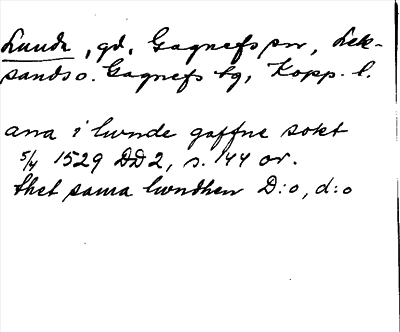 Lunde, gd, Gagnefs sn, Lek-
sands o. Gagnefs tg, Kopp. l.
ana i lwnde gaffne sokt
5/4 1529 DD2, s. 144 or.
thet sama lwndhen D:o, d:o